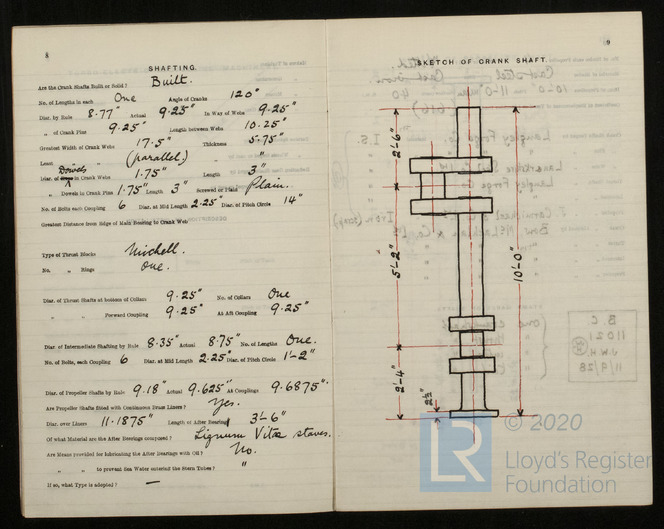 8
SHAFTING.
Are the Crank Shafts Built or Solid? Built.
No. of Lengths in each One Angle of Cranks 120°
Diar. by Rule 8.77" Actual 9.25" In Way of Webs 9.25"
" of Crank Pins 9.25" Length between Webs 10.25"
Greatest Width of Crank Webs 17.5" Thickness 5.75"
Least " " (parallel.) " "
Diar. of Dowels in Crank Webs 1.75" Length 3"
" Dowels in Crank Pins 1.75" Length 3" Screwed or Plain Plain.
No. of Bolts each Coupling 6 Diar. at Mid Length 2.25" Diar. of Pitch Circle 14"
Greatest Distance from Edge of Main Bearing to Crank Web
Type of Thrust Blocks Michell.
No. " Rings One.
Diar. of Thrust Shafts at bottom of Collars 9.25" No. of Collars One
" " Forward Coupling 9.25" At Aft Coupling 9.25"
Diar. of Intermediate Shafting by Rule 8.35" Actual 8.75" No. of Lengths One.
No. of Bolts, each Coupling 6 Diar. at Mid Length 2.25" Diar. of Pitch Circle 1'-2"
Diar. of Propeller Shafts by Rule 9.18" Actual 9.625" At Couplings 9.6875"
Are Propeller Shafts fitted with Continuous Brass Liners? Yes.
Diar. over Liners 11.1875" Length of After Bearings 3'-6"
Of what Material are the After Bearings composed? Lignum Vitæ staves.
Are Means provided for lubricating the After Bearings with Oil? No.
" " to prevent Sea Water entering the Stern Tubes? "
If so, what Type is adopted? —
9
SKETCH OF CRANK SHAFT.
2'-6"
5'-2"
10'-0"
2'-4"
2½"
© 2020
LR
Lloyd's Register
Foundation